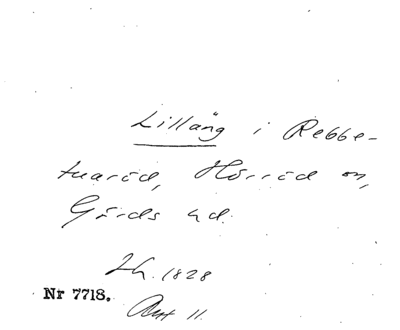 Lilläng i Rebbe-
tuaröd, Hörröd sn,
Gärds hd.
Lh. 1828
Nr 7718.
Akt 11.